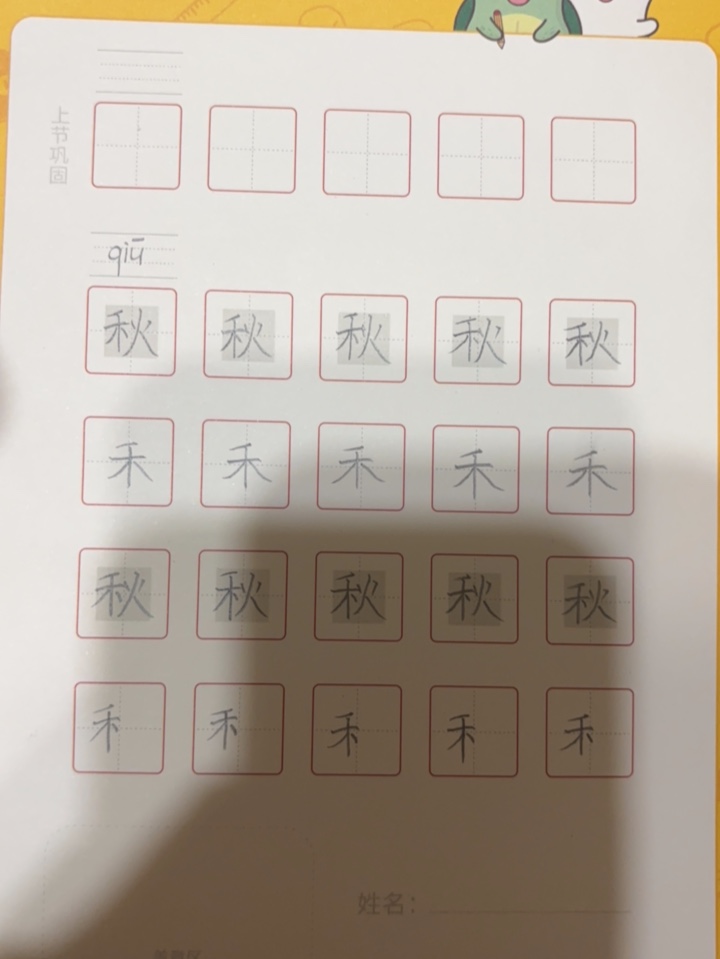 上节巩固
qiū
秋 秋 秋 秋 秋
禾 禾 禾 禾 禾
秋 秋 秋 秋 秋
禾 禾 禾 禾 禾
姓名：